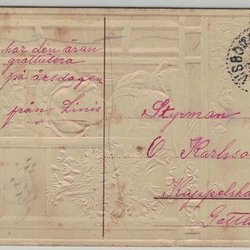 har den äran
grattulera
på årsdagen
från Linis
Styrman
O Karlsson
Kappelsh
Gottl